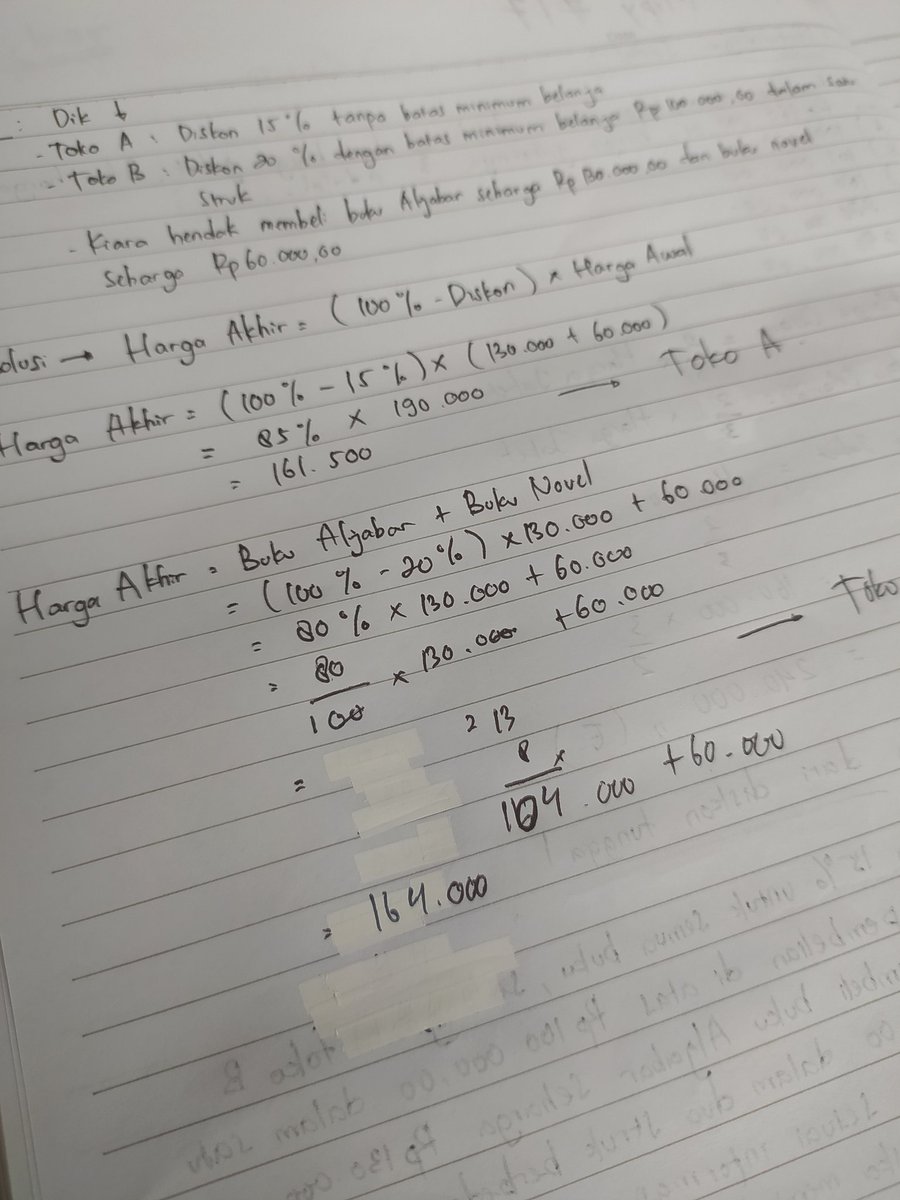 Dik :
- Toko A : Diskon 15% tanpa batas minimum belanja
- Toko B : Diskon 20 % dengan batas minimum belanja Rp 000,00 dalam
struk
- Kiara hendak membeli buku Aljabar seharga Rp 130.000,00 dan buku novel
seharga Rp 60.000,00
olusi → Harga Akhir = (100% - Diskon) × Harga Awal
Harga Akhir = (100% - 15%) × (130.000 + 60.000)
= 85% × 190.000 → Toko A
= 161.500
Harga Akhir = Buku Aljabar + Buku Novel
= (100% - 20%) × 130.000 + 60.000
= 80% × 130.000 + 60.000
= 80/100 × 130.000 + 60.000 → Toko
2 13
8 ×
= 104.000 + 60.000
= 164.000